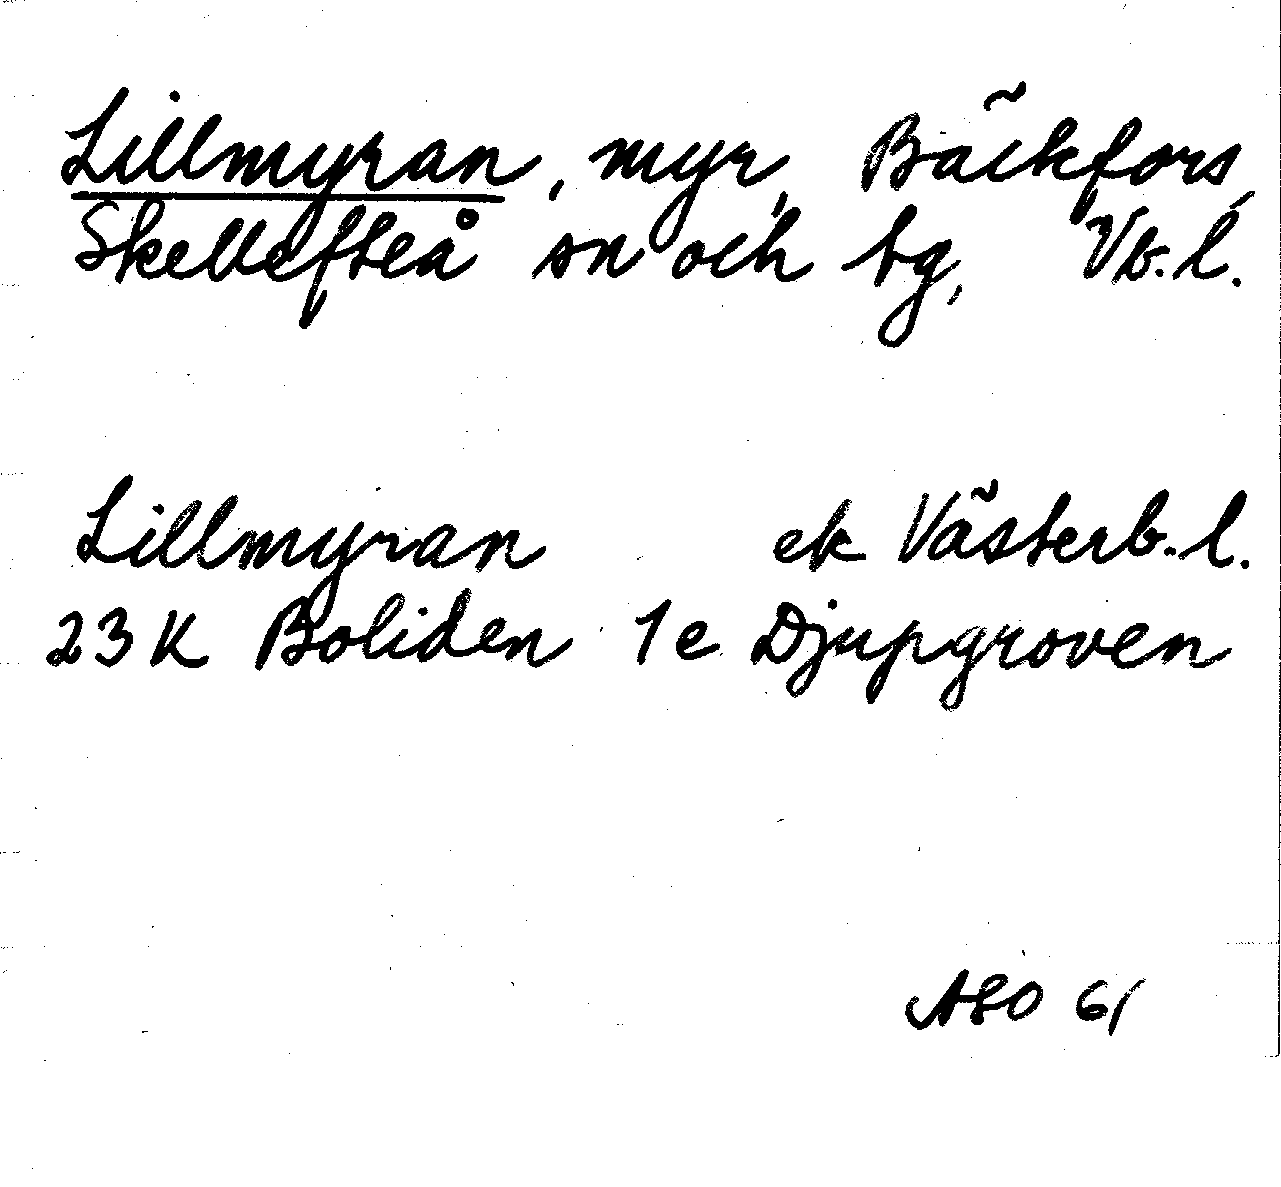 Lillmyran, myr, Bäckfors,
Skellefteå sn och tg, Vb.l.
Lillmyran ek Västerb.l.
23K Boliden 1e Djupgroven
ASO 61